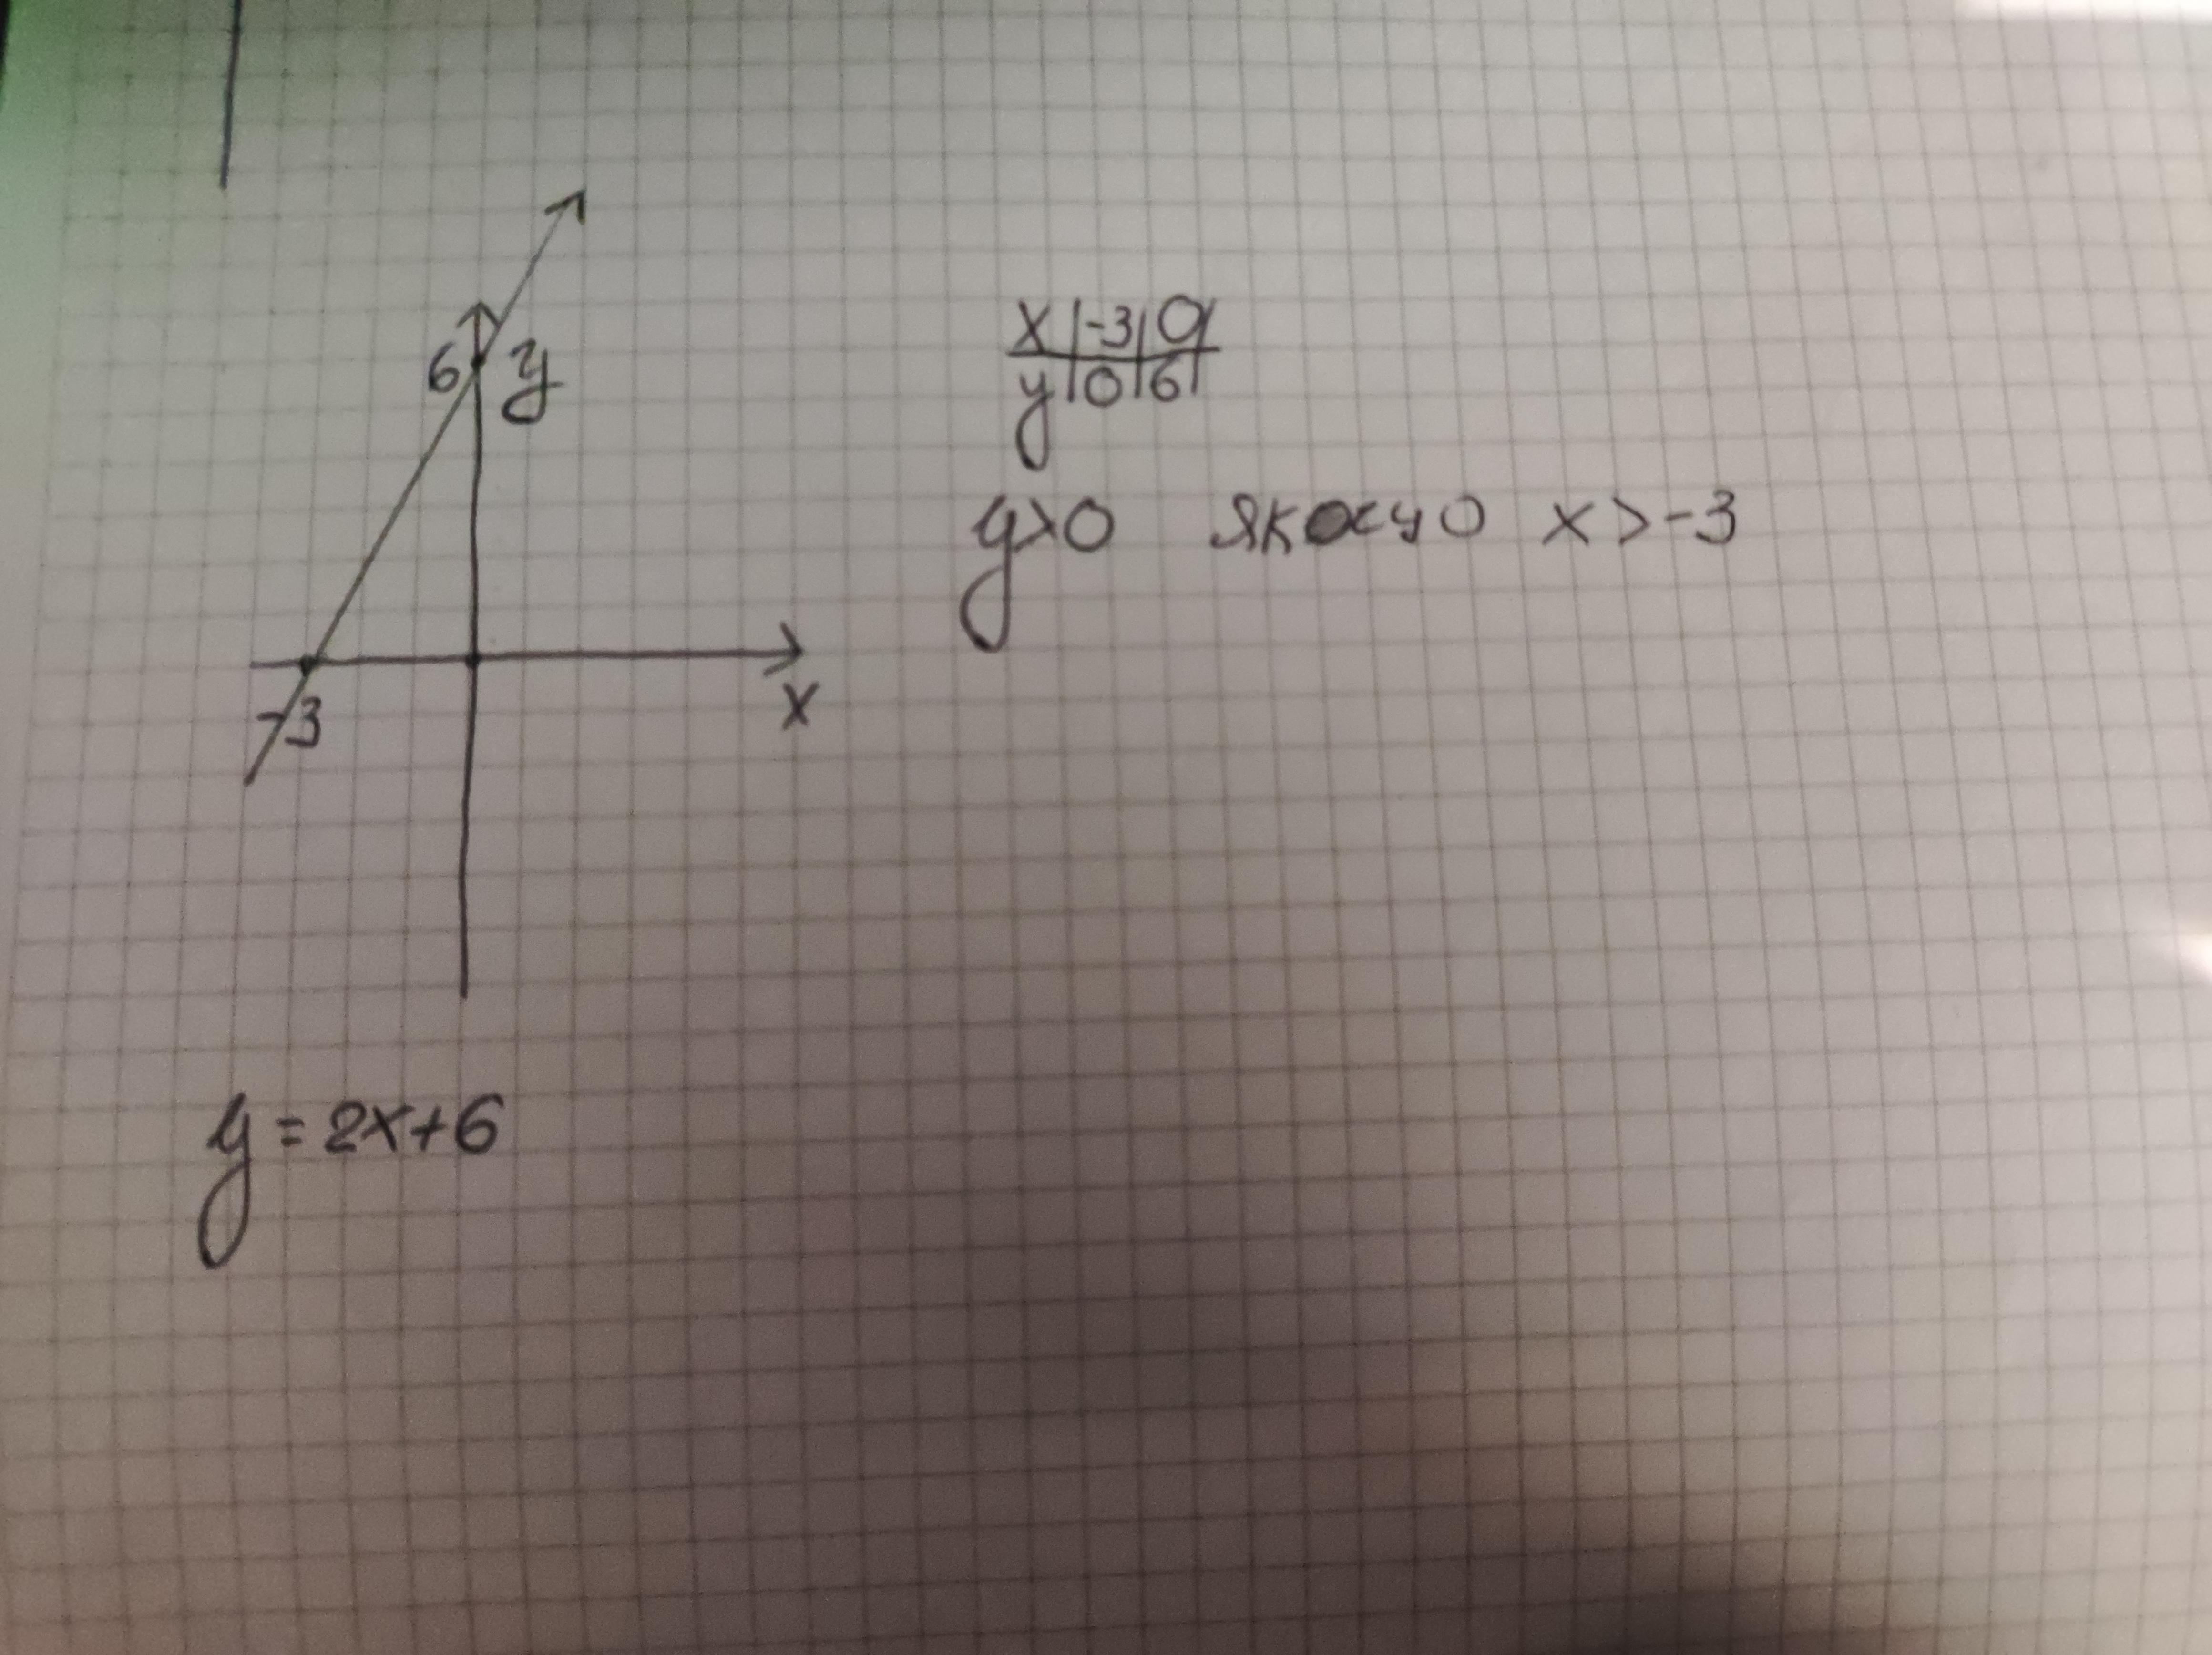 6 y
-3
x
x | -3 | 0 |
y | 0 | 6 |
y>0 якщо x > -3
y = 2x+6